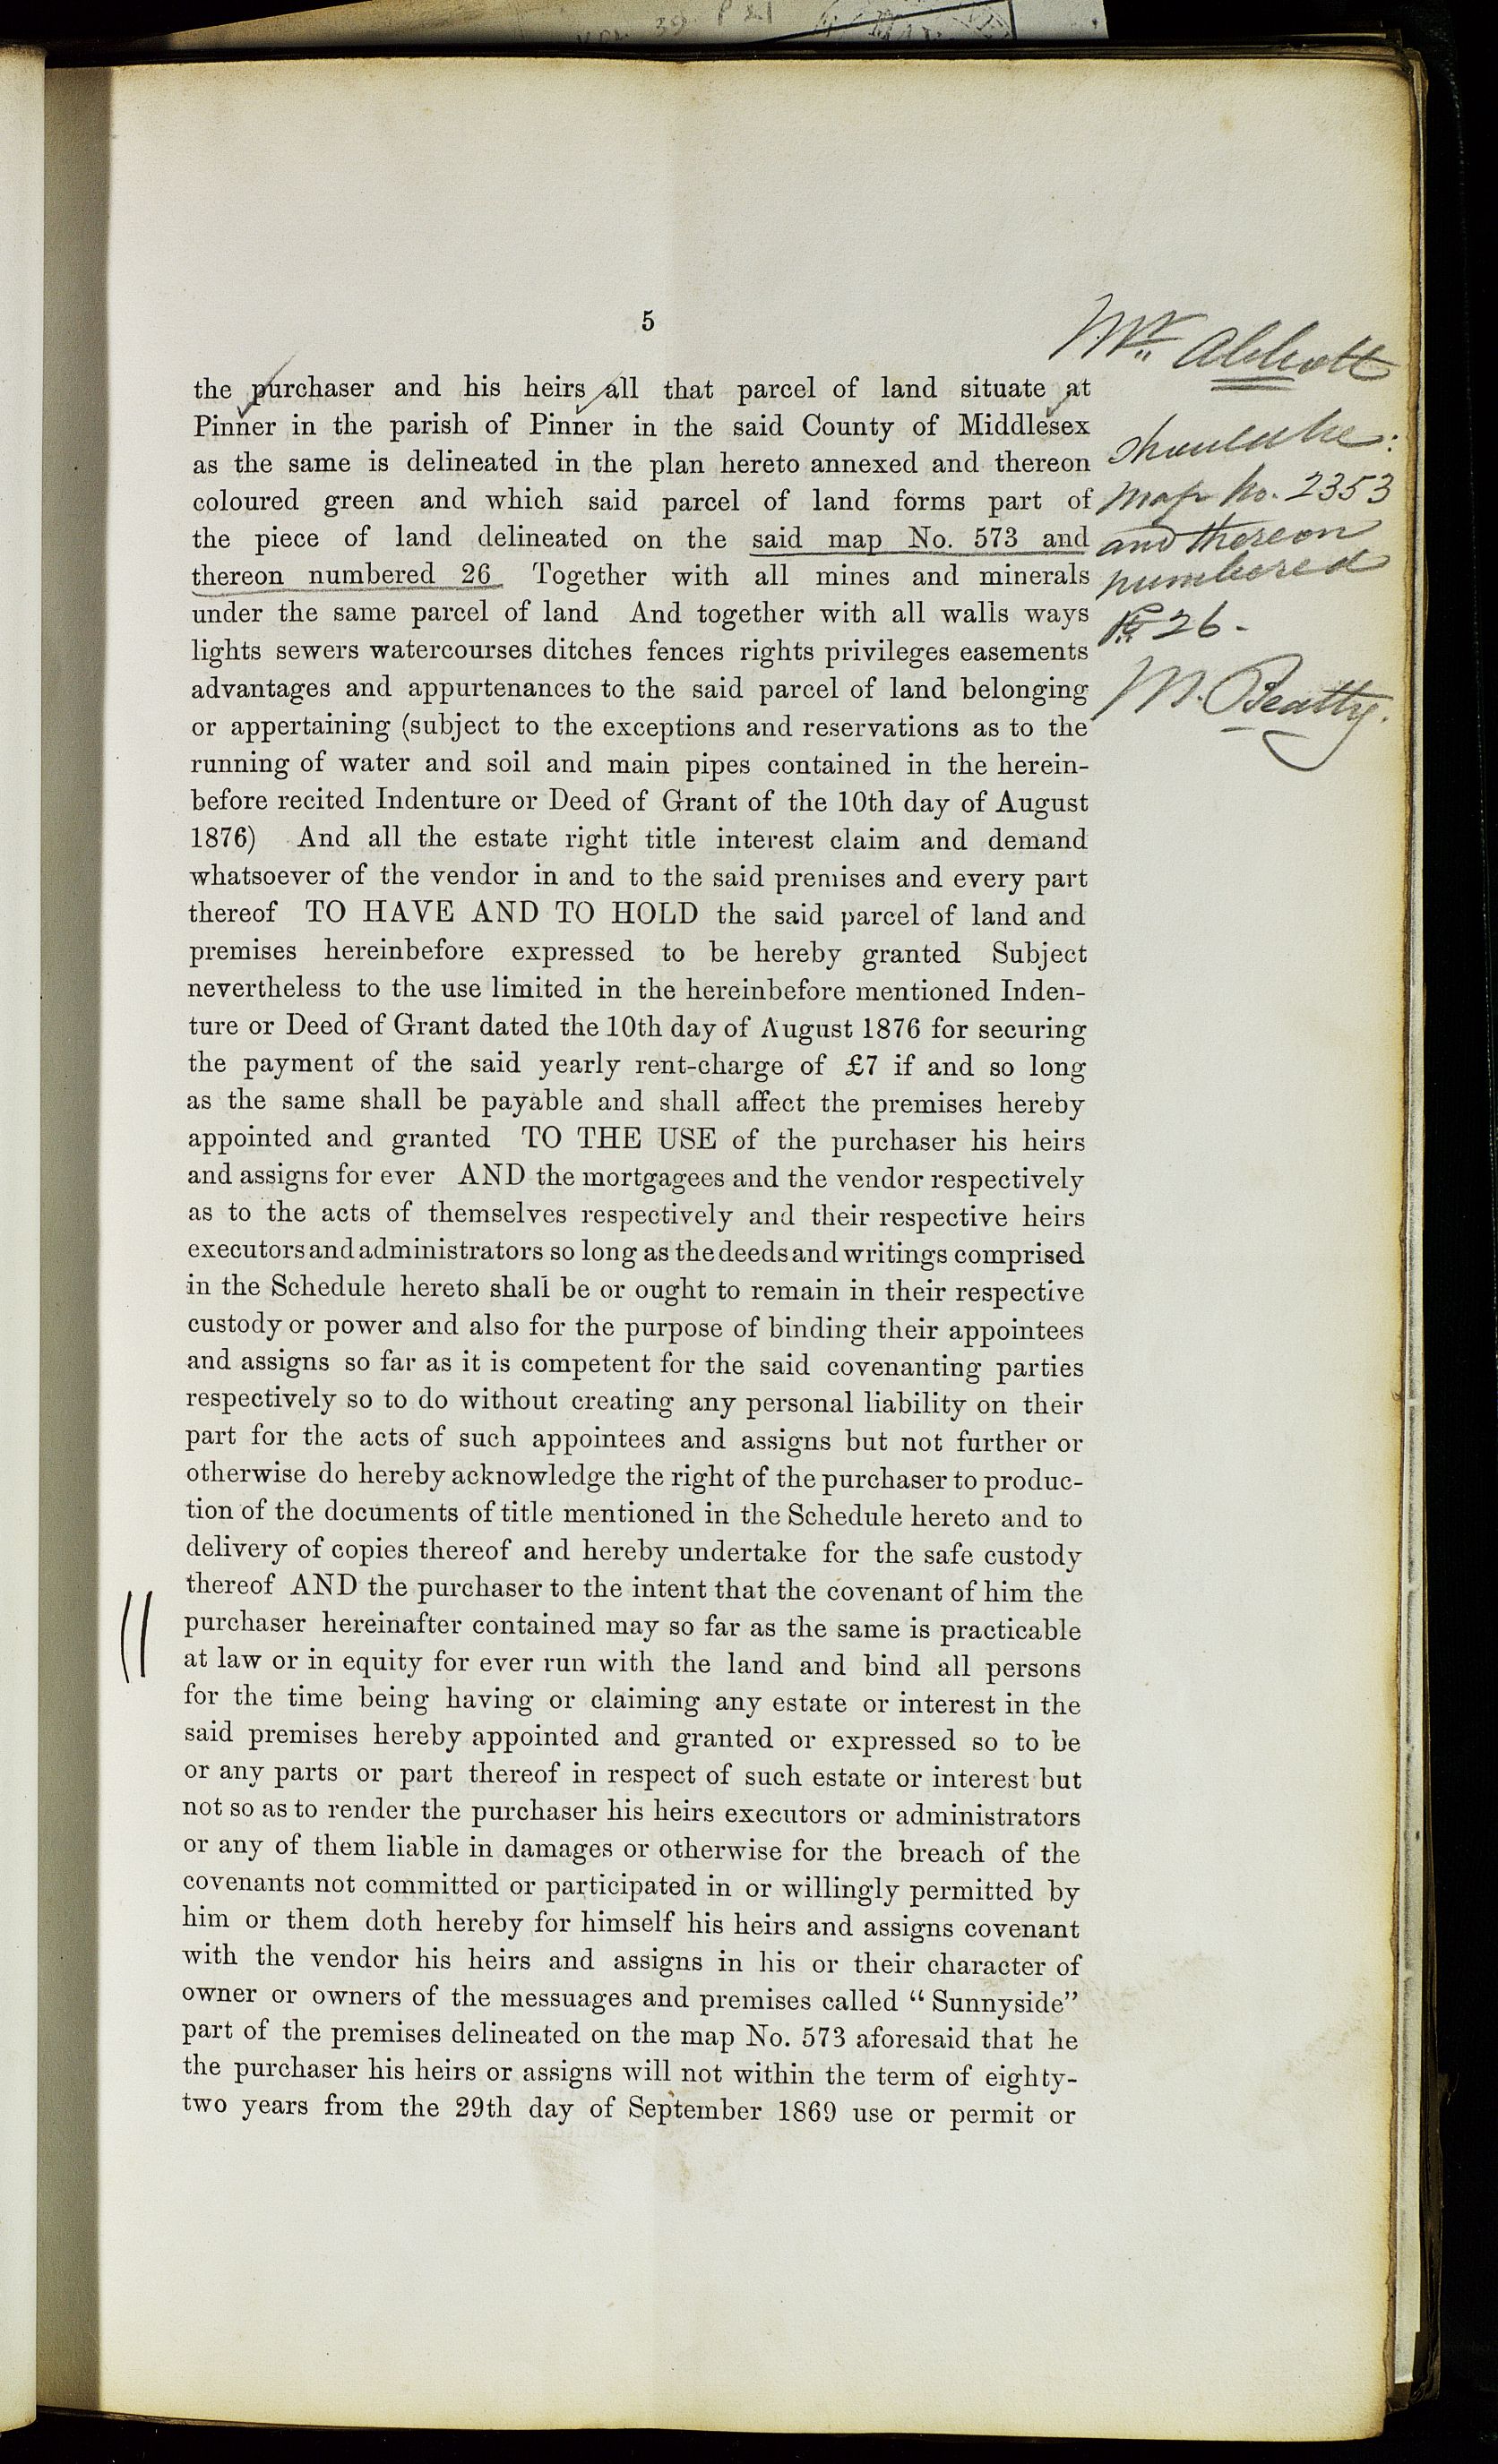 5
the purchaser and his heirs all that parcel of land situate at
Pinner in the parish of Pinner in the said County of Middlesex
as the same is delineated in the plan hereto annexed and thereon
coloured green and which said parcel of land forms part of
the piece of land delineated on the said map No. 573 and
thereon numbered 26 Together with all mines and minerals
under the same parcel of land And together with all walls ways
lights sewers watercourses ditches fences rights privileges easements
advantages and appurtenances to the said parcel of land belonging
or appertaining (subject to the exceptions and reservations as to the
running of water and soil and main pipes contained in the herein-
before recited Indenture or Deed of Grant of the 10th day of August
1876) And all the estate right title interest claim and demand
whatsoever of the vendor in and to the said premises and every part
thereof TO HAVE AND TO HOLD the said parcel of land and
premises hereinbefore expressed to be hereby granted Subject
nevertheless to the use limited in the hereinbefore mentioned Inden-
ture or Deed of Grant dated the 10th day of August 1876 for securing
the payment of the said yearly rent-charge of £7 if and so long
as the same shall be payable and shall affect the premises hereby
appointed and granted TO THE USE of the purchaser his heirs
and assigns for ever AND the mortgagees and the vendor respectively
as to the acts of themselves respectively and their respective heirs
executors and administrators so long as the deeds and writings comprised
in the Schedule hereto shall be or ought to remain in their respective
custody or power and also for the purpose of binding their appointees
and assigns so far as it is competent for the said covenanting parties
respectively so to do without creating any personal liability on their
part for the acts of such appointees and assigns but not further or
otherwise do hereby acknowledge the right of the purchaser to produc-
tion of the documents of title mentioned in the Schedule hereto and to
delivery of copies thereof and hereby undertake for the safe custody
thereof AND the purchaser to the intent that the covenant of him the
purchaser hereinafter contained may so far as the same is practicable
at law or in equity for ever run with the land and bind all persons
for the time being having or claiming any estate or interest in the
said premises hereby appointed and granted or expressed so to be
or any parts or part thereof in respect of such estate or interest but
not so as to render the purchaser his heirs executors or administrators
or any of them liable in damages or otherwise for the breach of the
covenants not committed or participated in or willingly permitted by
him or them doth hereby for himself his heirs and assigns covenant
with the vendor his heirs and assigns in his or their character of
owner or owners of the messuages and premises called “Sunnyside”
part of the premises delineated on the map No. 573 aforesaid that he
the purchaser his heirs or assigns will not within the term of eighty-
two years from the 29th day of September 1869 use or permit or
Mr. Abbott
should be:
map No. 2353
and thereon
numbered
26-
M. Beatty.